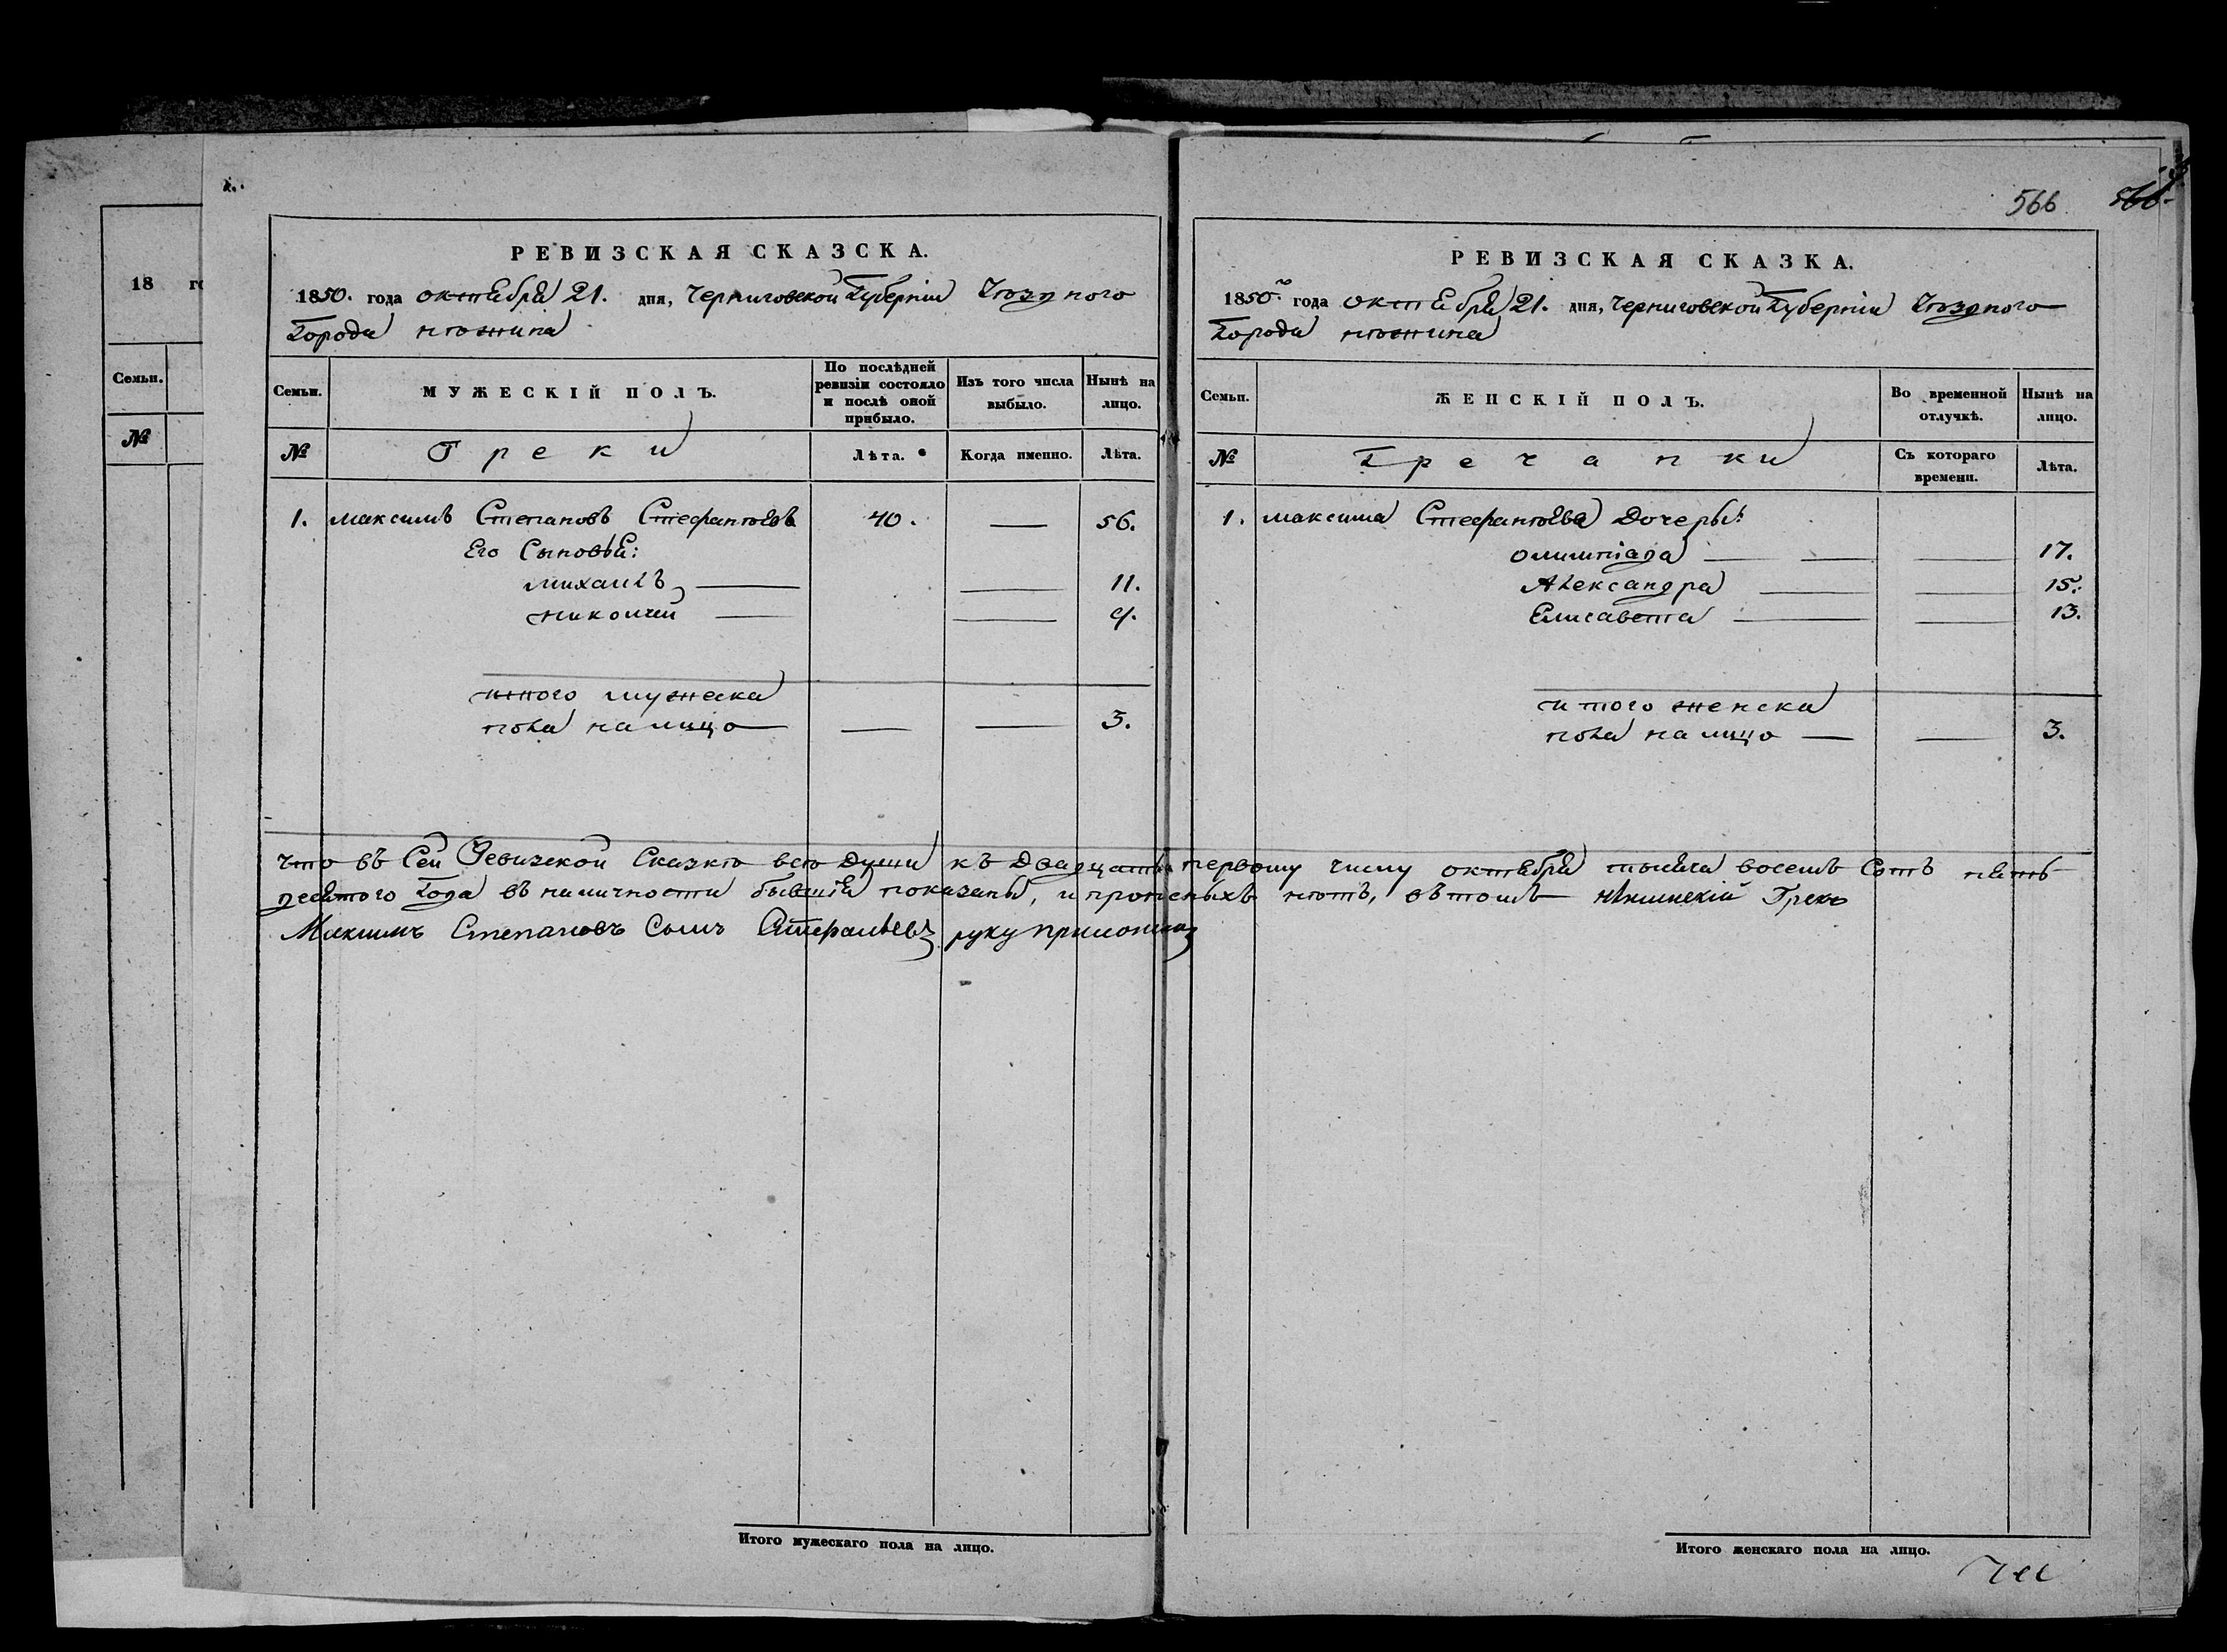 18 го
Семьи.
№
РЕВИЗСКАЯ СКАЗСКА.
1850. года октября 21. дня, Черниговской Губерніи Уѣзднаго
Города Нѣжина
Семьи.
МУЖЕСКІЙ ПОЛЪ.
По послѣдней ревизіи состояло и послѣ оной прибыло.
Изъ того числа выбыло.
Нынѣ на лицо.
№
Греки
Лѣта.
Когда именно.
Лѣта.
1. Максимъ Степановъ Стефанѣевъ 40. — 56.
Его Сыновья:
Михаилъ — — 11.
Николай — — 9.
Итого мужеска
пола на лицо — — 3.
566 566
РЕВИЗСКАЯ СКАЗКА.
1850го года октября 21. дня, Черниговской Губерніи Уѣзднаго
Города Нѣжина
Семьи.
ЖЕНСКІЙ ПОЛЪ.
Во временной отлучкѣ.
Нынѣ на лицо.
№
Гречанки
Съ котораго времени.
Лѣта.
1. Максима Стефанѣева Дочери:
Олимпіада — — 17.
Александра — — 15.
Елисавета — — 13.
Итого женска
пола на лицо — — 3.
Что въ Сей Ревизской Сказкѣ всѣ Души къ Двадцать первому числу октября тысяча восемь Сотъ пять
десятого Года въ наличности бывшія показаны, и прописныхъ нѣтъ, въ томъ Нѣжинскій Грекъ
Максимъ Степановъ Сынъ Стефанѣевъ руку приложилъ
Итого мужескаго пола на лицо.
Итого женскаго пола на лицо.